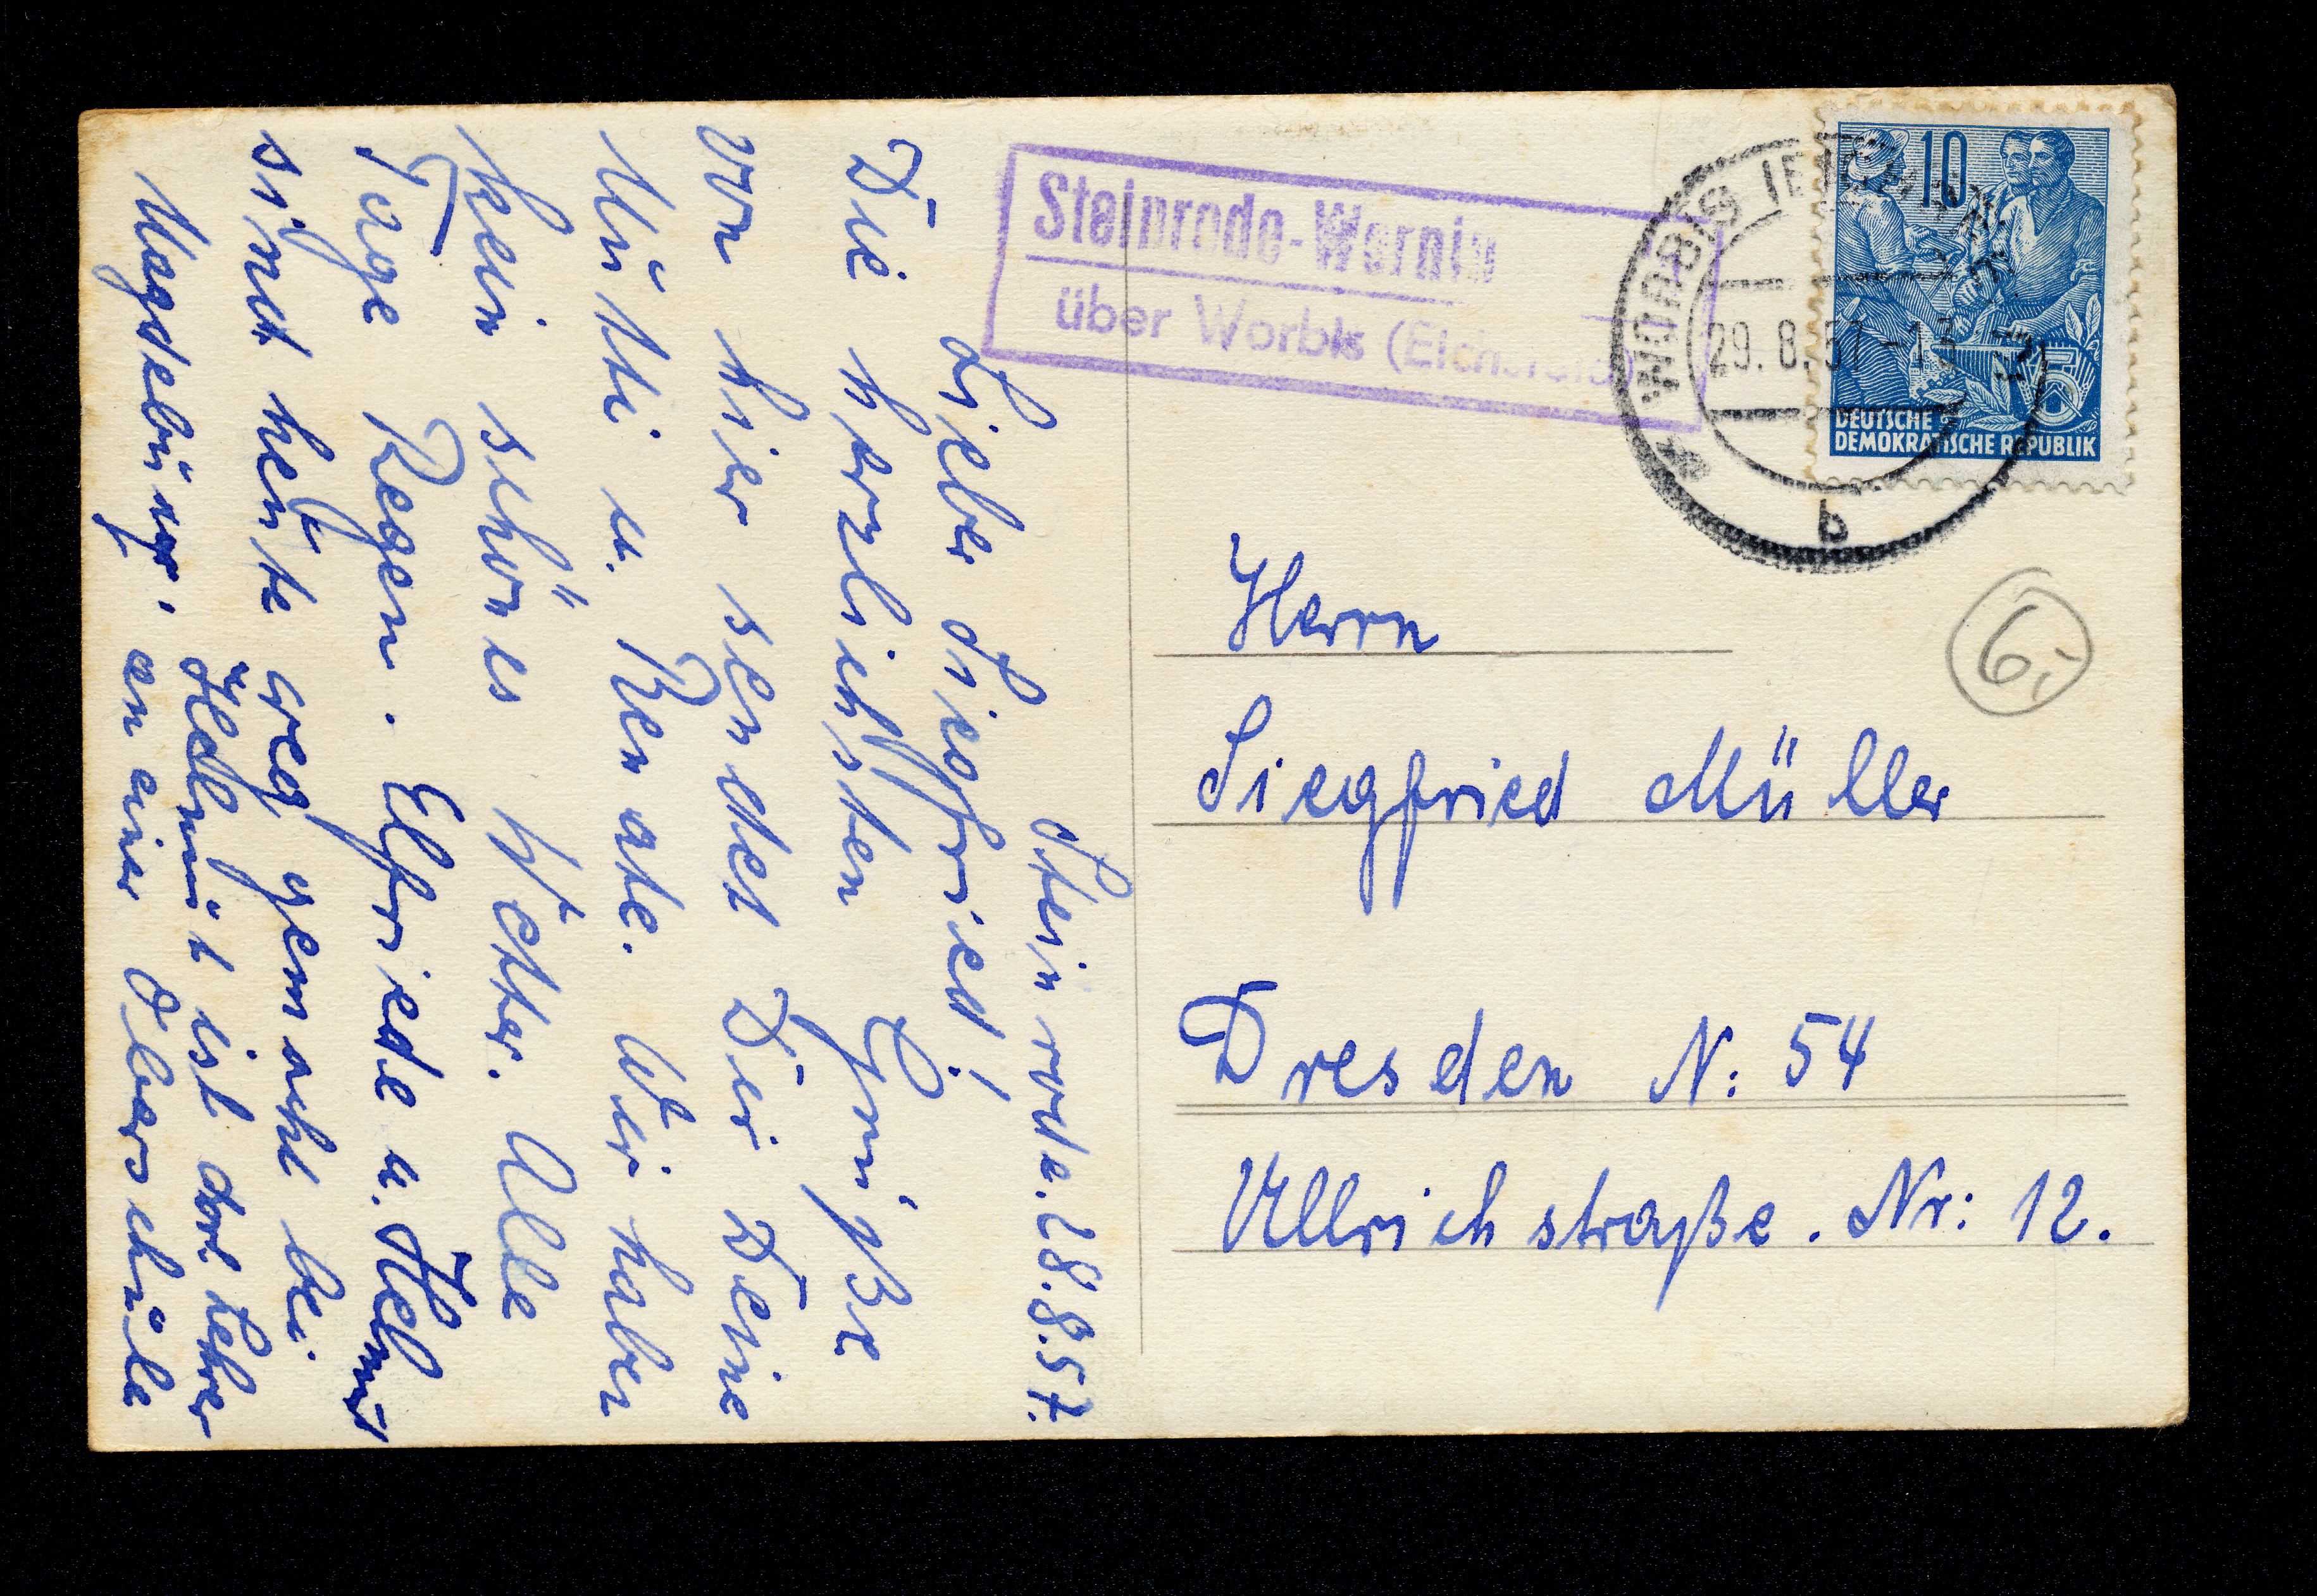 Steinrode. 28.8.57.
Lieber Siegfried!
Die herzlichsten Grüße
von hier sendet Dir Deine
Mutti u. Renate. Wir haben
kein schönes Wetter. Alle
Tage Regen. Elfriede u. Helmut
sind heute weg gemacht bei
Magdebürg. Helmut ist dort Lehrer
an einer Oberschule
Steinrode-
über Worbis (Eichsfeld)
WORBIS (EICHSFELD)
29.8.57-13
b
10
DEUTSCHE
DEMOKRATISCHE REPUBLIK
6,-
Herrn
Siegfried Müller
Dresden N: 54
Ullrichstraße. Nr: 12.